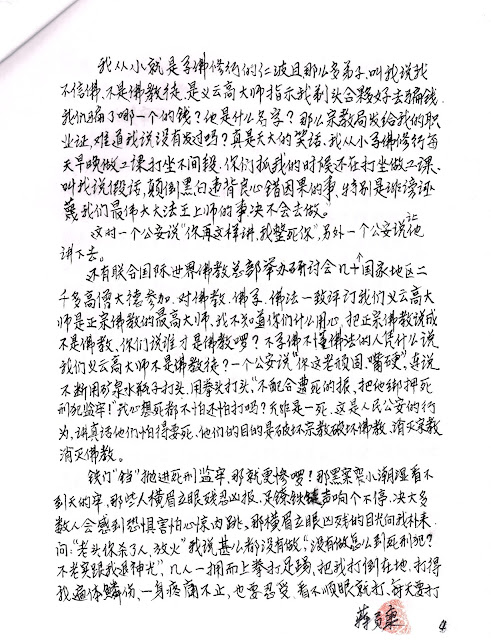 我从小就是学佛修行的仁波且那么多弟子,叫我说我
不信佛,不是佛教徒,是义云高大师指示我剃头合夥好去骗钱。
我们骗了哪一个的钱?他是什么名字?那么宗教局发给我的职
业证,难道我说没有发过吗?真是天大的笑话。我从小学佛修行每
天早晚做工课打坐不间段,你们抓我的时候还在打坐做工课、
叫我说假话,颠倒黑白违背良心错因果的事、特别是诽谤诬
蔑我们最伟大大法王上师的事决不会去做。
这时一个公安说“你再这样讲,我整死你”,另外一个公安说让他
讲下去。
还有联合国际世界佛教总部举办研讨会几十国家地区二
千多高僧大德参加,对佛教、佛学、佛法一致评订我们义云高大
师是正宗佛教的最高大师、我不知道你们什么用心,把正宗佛教说成
不是佛教、你们说谁才是佛教啰?不学佛不懂佛法的人凭什么说
我们义云高大师不是佛教徒?一个公安说“你这老顽固、嘴硬”,连说
不断用矿泉水瓶子打头,用拳头打头,“不配合遭死的报、把他绑押死
刑犯监牢!”我心想死都不怕还怕打吗?无非是一死、这是人民公安的行
为,讲真话他们怕得要死、他们的目的是破坏宗教破坏佛教、消灭宗教
消灭佛教。
铁门“铛”抛进死刑监牢,那就更惨啰!那黑窄窄小潮湿看不
到天的牢,那些人横眉立眼残忍凶报、足镣铁链声响个不停,决大多
数人会感到恐惧害怕心惊肉跳。那横眉立眼凶残的目光向我朴来,
问:“老头你杀了人、放火”我说甚么都没有做,“没有做怎么到死刑犯?
不老实跟我退神光”,几人一拥而上拳打足踢,把我打倒在地,打得
我遍体鳞伤、一身疼痛不止,也要忍受、看不顺眼就打、每天要打
4